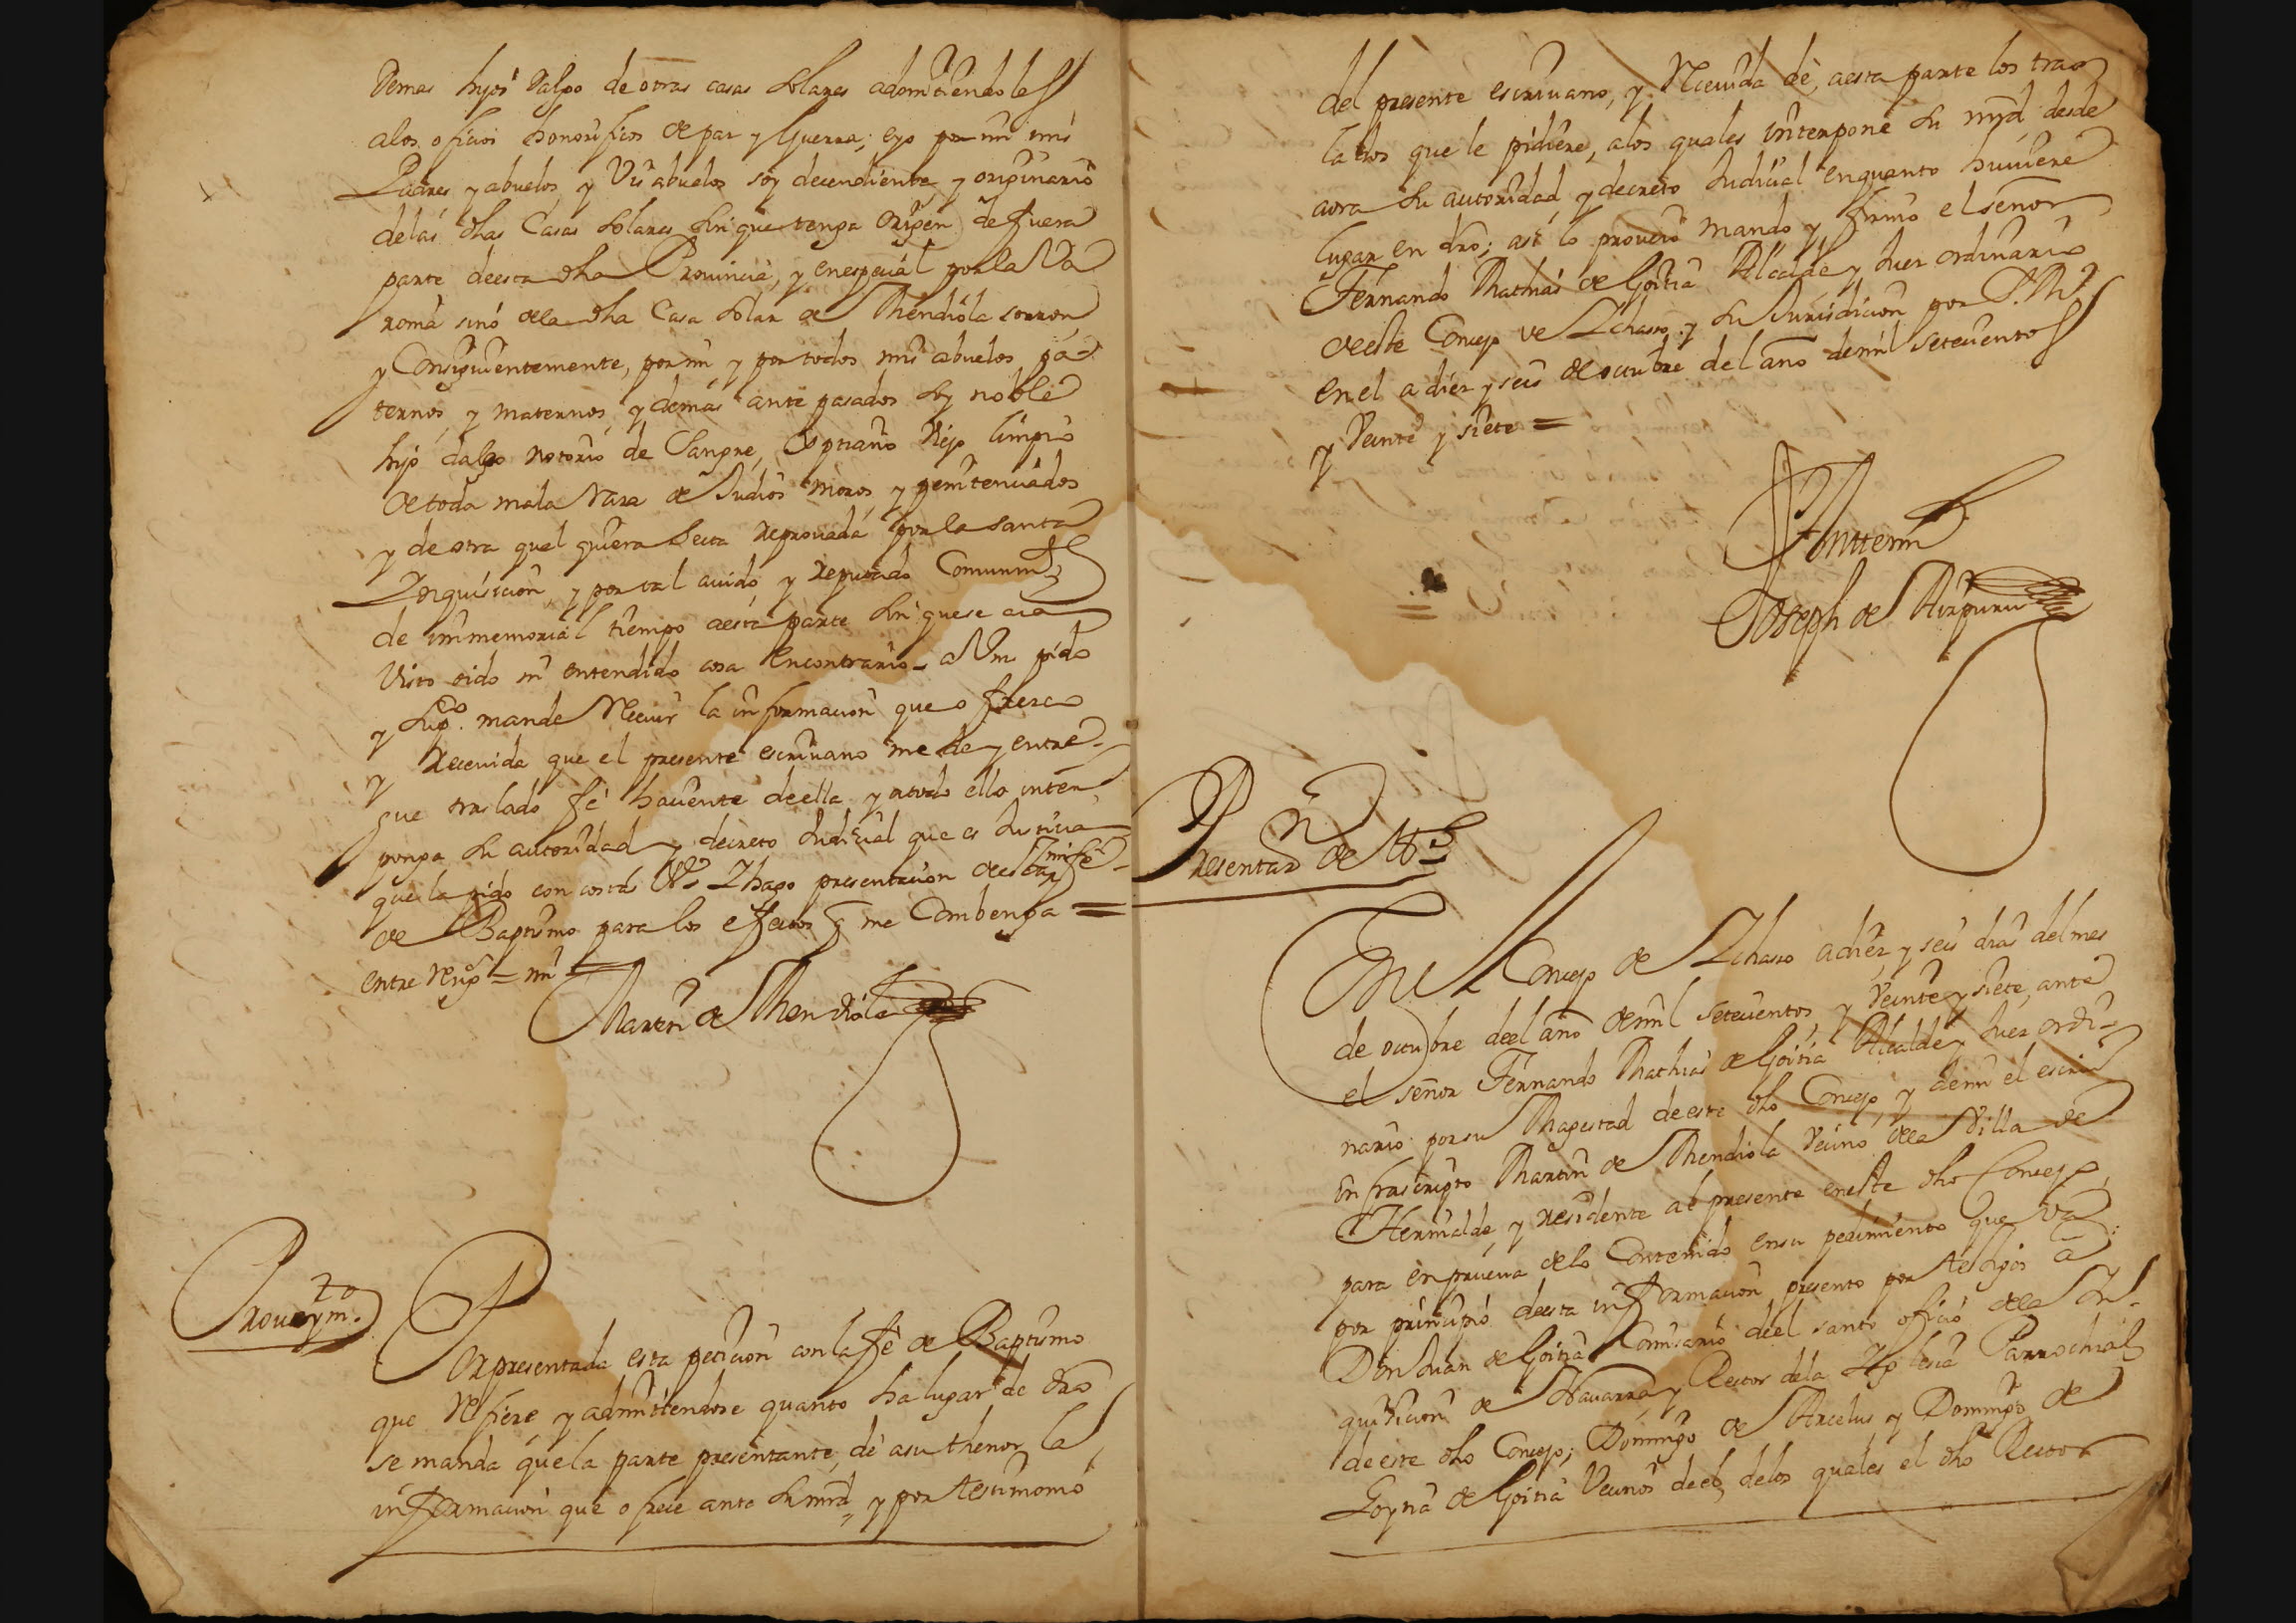 demas hijos dalgo de otras casas solares admitiendoles
alos oficios honorificos de paz y Guerra; eyo por mi mis
Padres y abuelos y Visabuelos soy decendiente y originario
delas dhas Casas solares sin que tenga origen de fuera
parte deesta dha Provincia, y enespecial por la Va
ronia sino dela dha Casa solar de Mendiola
y Consiguientemente, por mi y por todos mis abuelos pa
ternos, y maternos, y demas ante pasados soy noble
hijo dalgo notorio de Sangre, Xptiano Viejo limpio
de toda mala Raza de Judios moros, y penitenciados
y de otra qual quiera Secta reprovada por la santa
Inquisicion, y por tal avido y reputado Comunmte
de immemorial tiempo aesta parte sin quese aia
Visto oido ni entendido cosa encontrario - a Vm pido
y Supco. mande Recivir la informacion que ofrezco
y recevida que el presente escrivano me de y entre-
gue traslado feè haciente deella y atodo ello inter
ponga su autoridad y decreto Judicial que es Justicia
que la pido con costas Va Yhago presentacion deesta mi feè
de Baptismo para los efectos q me Combenga =
entre Rengs = mi
Martin de Mendiola
Proveymto.
Por presentada esta peticion con la fè de Baptismo
que refiere y admitiendose quanto ha lugar de dro
se manda quela parte presentante, dè asu thenor la
informacion que ofrece ante su mrd, y por testimonio
del presente escrivano, y Recivida dè, aesta parte los tras
lados que le pidiere, alos quales interpone su mrd desde
aora su autoridad, y decreto Judicial enquanto huviere
lugar en dro; asi lo proveio mando y firmo el señor
Fernando Mathias de Goitia Alcalde y Juez ordinario
deeste Concejo de Ichasso y su Jurisdicion por S. Md
en el a diez y seis de octubre del año demil setecientos
y Veinte y siete =
Antte mi
Joseph de Aizpuru
Presentazn de ttos
En el Concejo de Ichasso adiez y seis dias del mes
de octubre deel año demil setecientos y Veinte y siete, ante
el señor Fernando Mathias de Goitia Alcalde y Juez ordi-
nario por su Magestad deeste dho Concejo, y demi el escrivo
infrascripto Martin de Mendiola Vecino dela Villa de
Hernialde, y residente al presente eneste dho Concejo,
para enprueva delo Contenido ensu pedimiento que va
por principio deesta informacion presento por testigos a:
Don Juan de Goitia Comisario deel santo oficio dela In-
quisicion de Navarra, y Rector dela Iglesia Parrochial
deeste dho Concejo; Domingo de Arcelus y Domingo de
Goytia Vecinos deel, delos quales el dho Rector